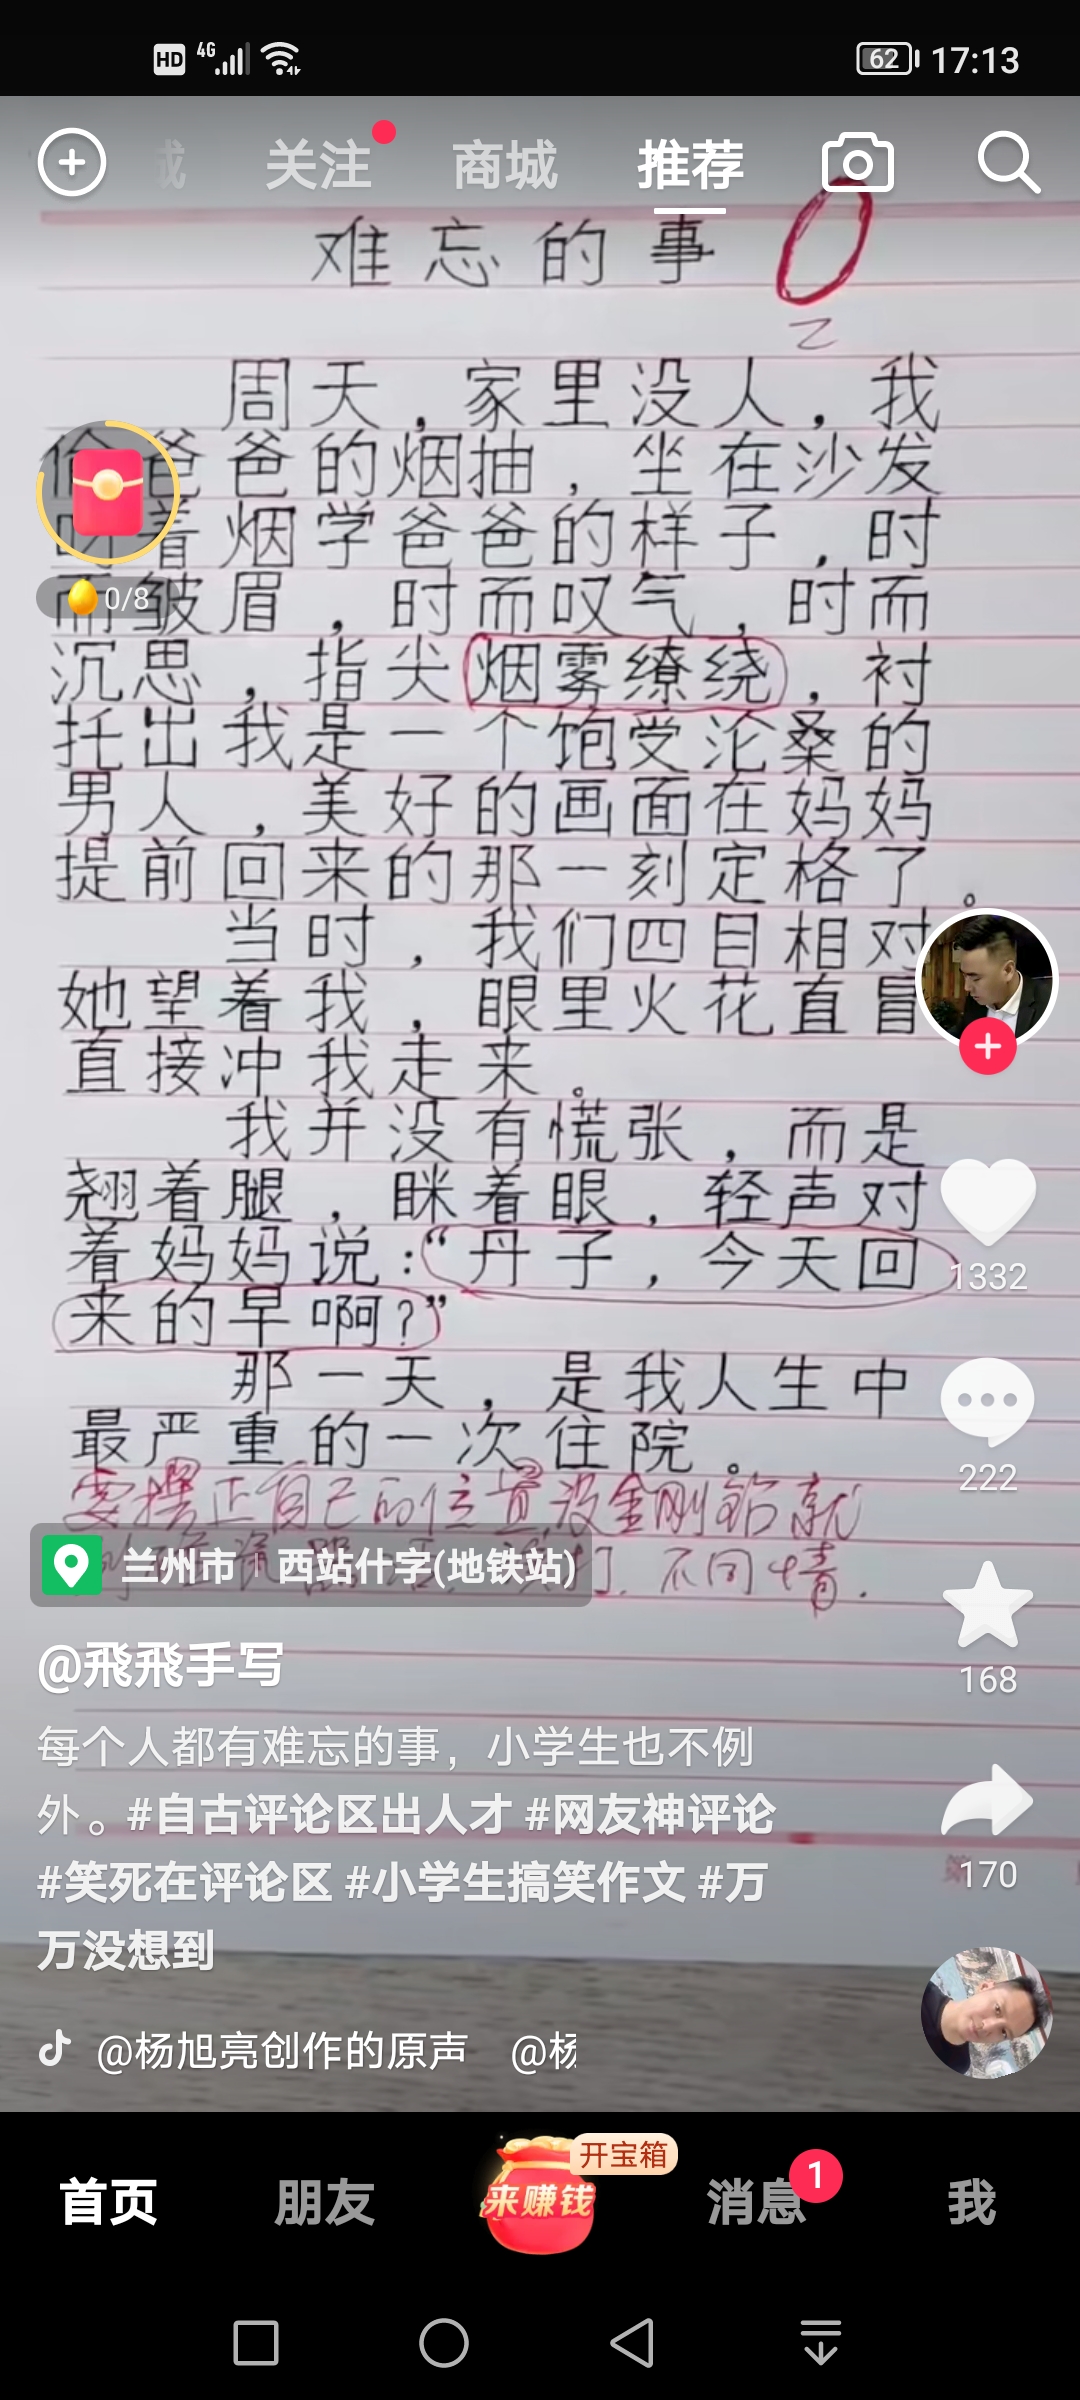 HD 4G 62 17:13
关注 商城 推荐
难忘的事
乙
周天，家里没人，我
偷爸爸的烟抽，坐在沙发
着烟学爸爸的样子，时
而皱眉，时而叹气，时而
沉思，指尖烟雾缭绕，衬
托出我是一个饱受沧桑的
男人，美好的画面在妈妈
提前回来的那一刻定格了。
当时，我们四目相对
她望着我，眼里火花直冒
直接冲我走来。
我并没有慌张，而是
翘着腿，眯着眼，轻声对
着妈妈说：“丹子，今天回
来的早啊?”
那一天，是我人生中
最严重的一次住院。
要摆正自己的位置,没金刚钻就
不同情.
0/8
1332
222
168
170
兰州市 西站什字(地铁站)
@飛飛手写
每个人都有难忘的事，小学生也不例
外。#自古评论区出人才 #网友神评论
#笑死在评论区 #小学生搞笑作文 #万
万没想到
@杨旭亮创作的原声 @杨
开宝箱
首页 朋友 来赚钱 消息 1 我